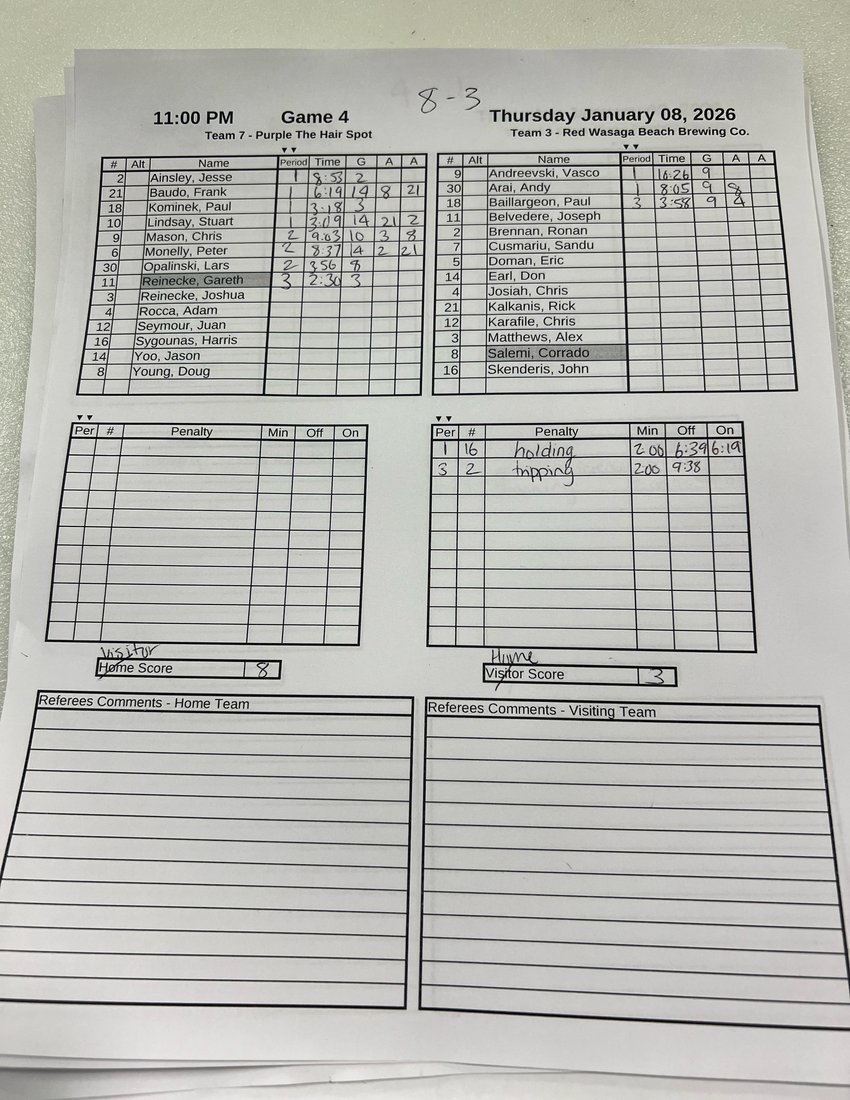 8-3
11:00 PM Game 4 Thursday January 08, 2026
Team 7 - Purple The Hair Spot
# Alt Name Period Time G A A
2 Ainsley, Jesse 1 8:53 2
21 Baudo, Frank 1 6:19 14 8 21
18 Kominek, Paul 1 3:18 3
10 Lindsay, Stuart 1 3:09 14 21 2
9 Mason, Chris 2 9:03 10 3 8
6 Monelly, Peter 2 8:37 14 2 21
30 Opalinski, Lars 2 3:56 8
11 Reinecke, Gareth 3 2:30 3
3 Reinecke, Joshua
4 Rocca, Adam
12 Seymour, Juan
16 Sygounas, Harris
14 Yoo, Jason
8 Young, Doug
Team 3 - Red Wasaga Beach Brewing Co.
# Alt Name Period Time G A A
9 Andreevski, Vasco 1 10:26 9
30 Arai, Andy 1 8:05 9 8
18 Baillargeon, Paul 3 3:58 9 4
11 Belvedere, Joseph
2 Brennan, Ronan
7 Cusmariu, Sandu
5 Doman, Eric
14 Earl, Don
4 Josiah, Chris
21 Kalkanis, Rick
12 Karafile, Chris
3 Matthews, Alex
8 Salemi, Corrado
16 Skenderis, John
Per # Penalty Min Off On
Per # Penalty Min Off On
1 16 holding 2:00 6:39 6:19
3 2 tripping 2:00 9:38
Visitor
Home Score 8
Home
Visitor Score 3
Referees Comments - Home Team
Referees Comments - Visiting Team